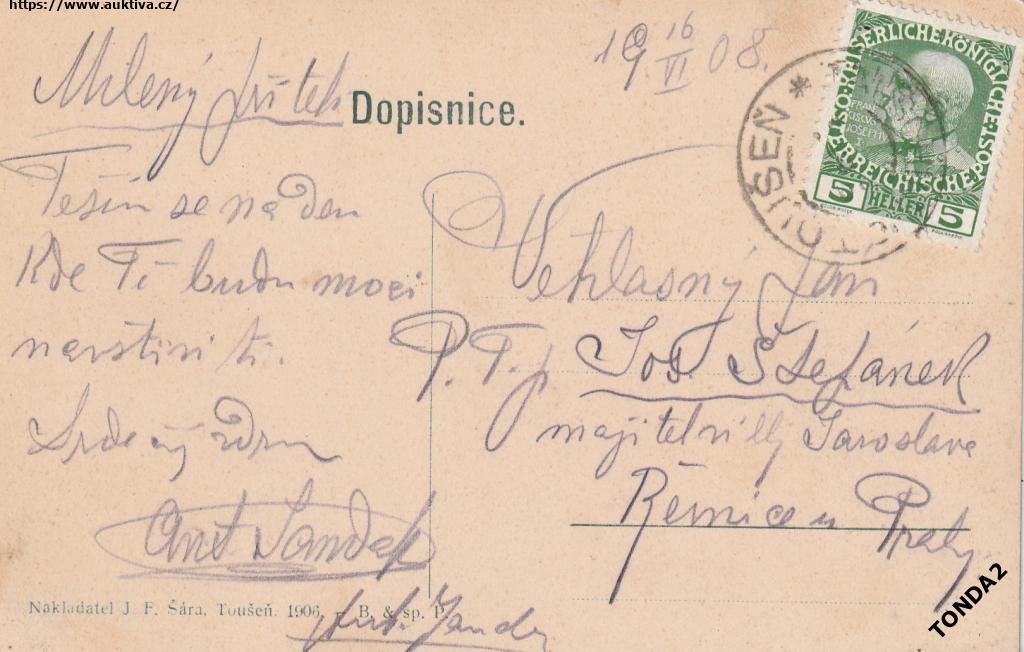 https://www.auktiva.cz/
19 16/VI 08.
Milený
Dopisnice.
KAISERLICHE KÖNIGLICHE
ÖSTERREICHISCHE
FRANCISCVS JOSEPH I
5 HELLER 5
TOUŠEŇ
Těším se na den
Kde Tě budu moci
navštíviti.
Srdečný zdra
Ant Janda
Nakladatel J. F. Šára, Toušeň. 1906. – B. & sp. P.
Ant. Janda
Vehlasný Pan
P. T. p Jos. Štefánek
majitel villy Jaroslava
Řevnice u Prahy
TONDA2